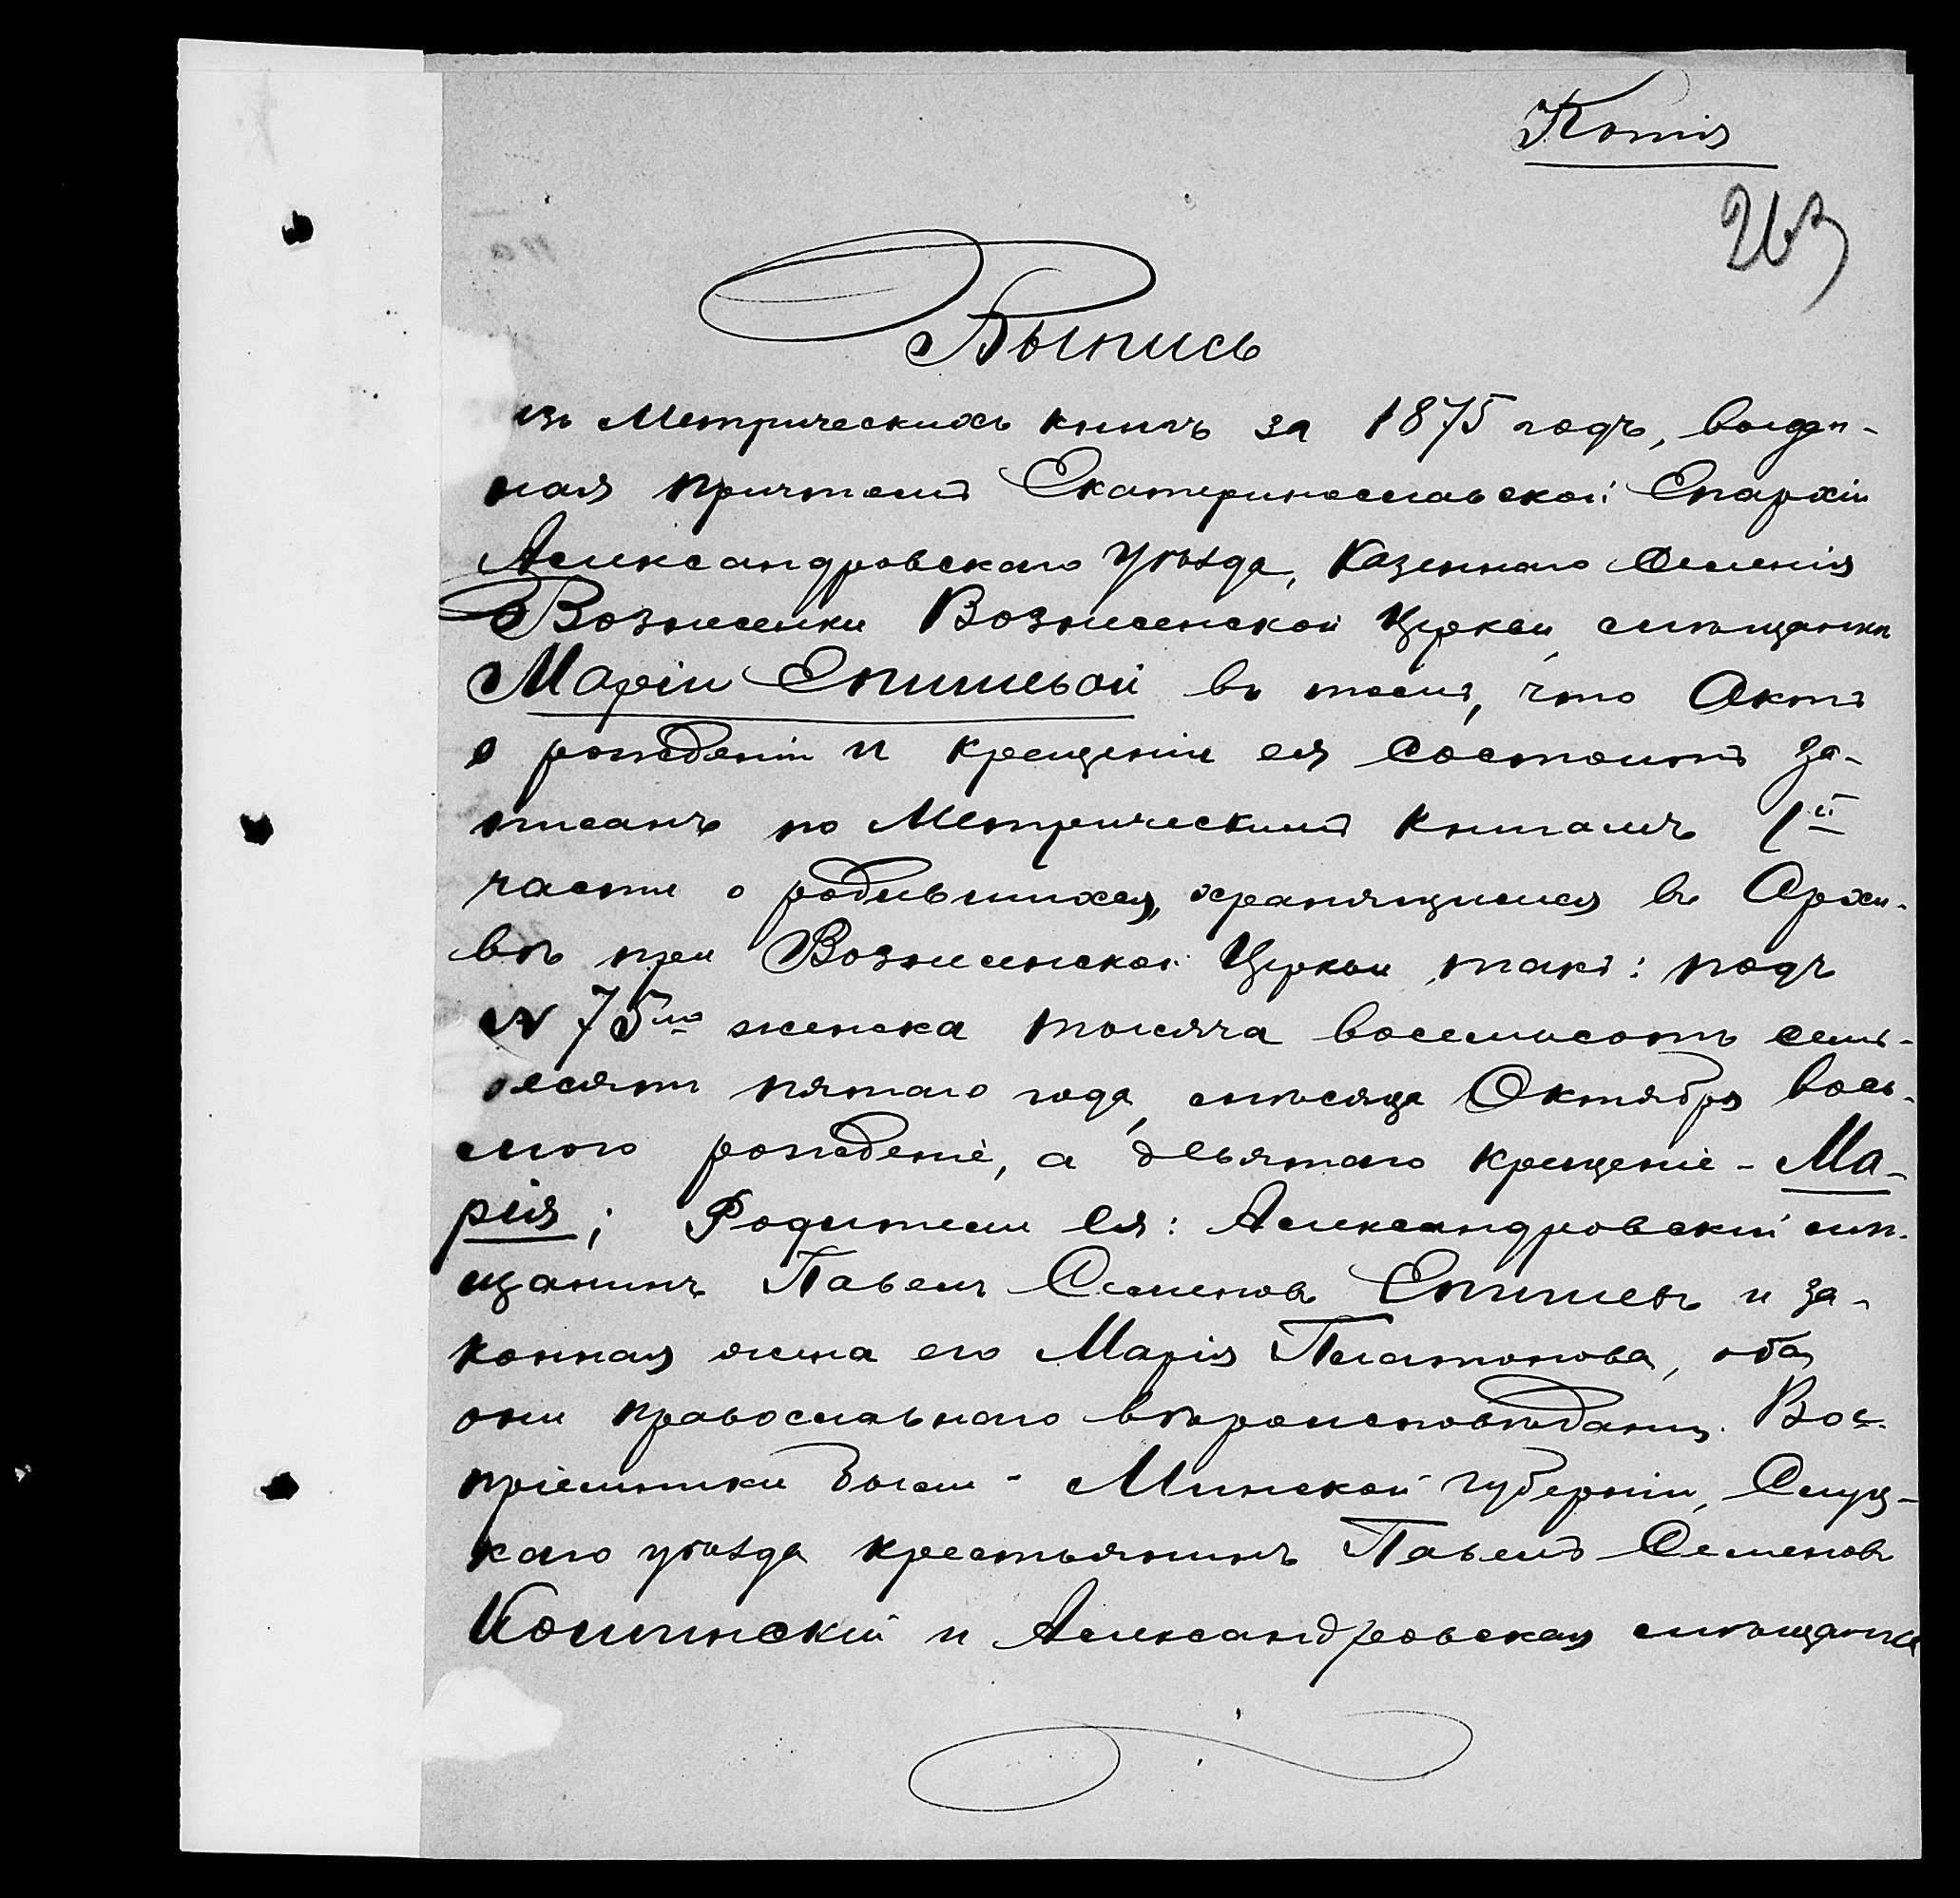 Копія
263
Выпись
изъ Метрическихъ книгъ за 1875 годъ, выдан-
ная причтомъ Екатеринославской Епархіи
Александровскаго Уѣзда, Казеннаго Селенія
Вознесенки Вознесенской Церкви, мѣщанки
Маріи Епишевой въ томъ, что Актъ
о рожденіи и крещеніи ея состоитъ за-
писанъ по Метрическимъ книгамъ 1й
части о родившихся, хранящимся въ Архи-
вѣ при Вознесенской Церкви такъ: подъ
№ 75мъ женска тысяча восемьсотъ семь-
десятъ пятаго года, мѣсяца Октября вось-
мого рожденіе, а девятаго крещеніе - Ма-
рія; Родители Ея: Александровскій мѣ-
щанинъ Павелъ Семеновъ Епишевъ и за-
конная жена его Марія Платонова, оба
они православнаго вѣроисповѣданія. Вос-
пріемники были - Минской губерніи, Слуц-
каго уѣзда крестьянинъ Павелъ Семеновъ
и Александровская мѣщанка